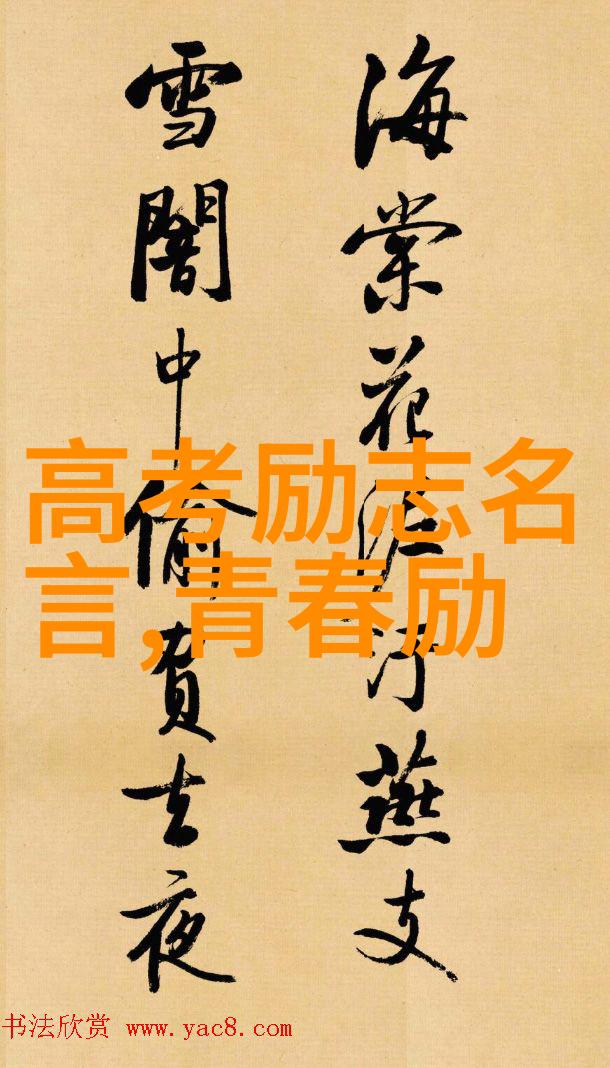 海棠花泥汙燕支
雪闇中偷負去夜
高考励志名
言,青春励
书法欣赏 www.yac8.com